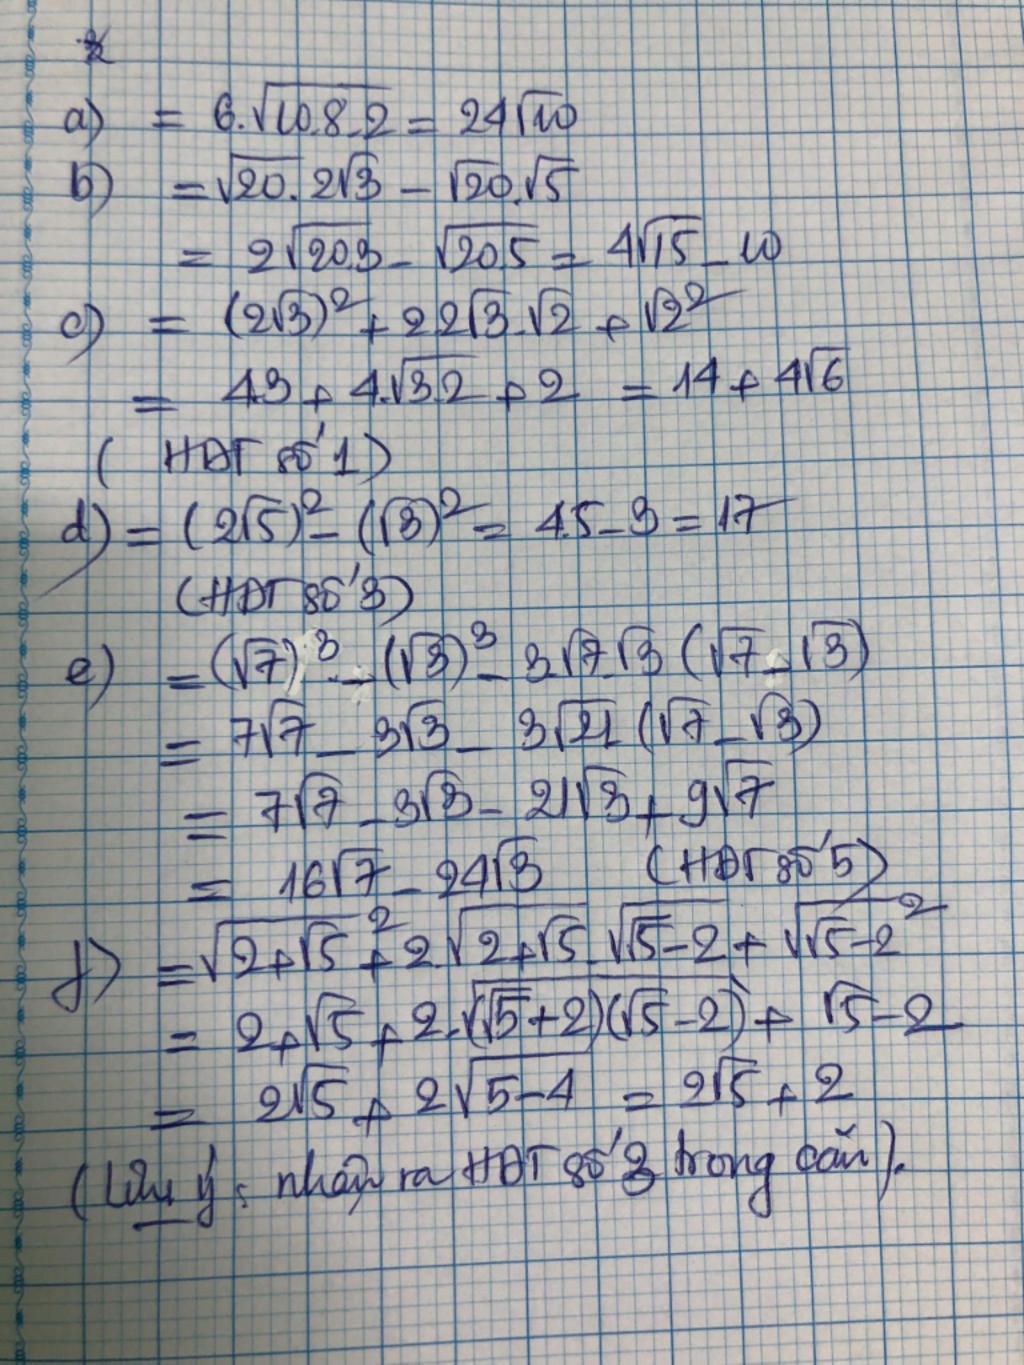 a) = 6.√10.8.2 = 24√10
b) = √20.2√3 - √20.√5
= 2√20.3 - √20.5 = 4√15 - 10
c) = (2√3)² + 2.2√3.√2 + √2²
= 4.3 + 4.√3.2 + 2 = 14 + 4√6
( HĐT số 1)
d) = (2√5)² - (√3)² = 4.5 - 3 = 17
(HĐT số 3)
e) = (√7)³ - (√3)³ - 3√7.√3 (√7 - √3)
= 7√7 - 3√3 - 3√21 (√7 - √3)
= 7√7 - 3√3 - 21√3 + 9√7
= 16√7 - 24√3 (HĐT số 5)
f) = √2+√5² + 2.√2+√5.√√5-2 + √√5-2²
= 2+√5 + 2.√(√5+2)(√5-2) + √5-2
= 2√5 + 2√5-4 = 2√5 + 2
(Lưu ý: nhận ra HĐT số 3 trong căn).